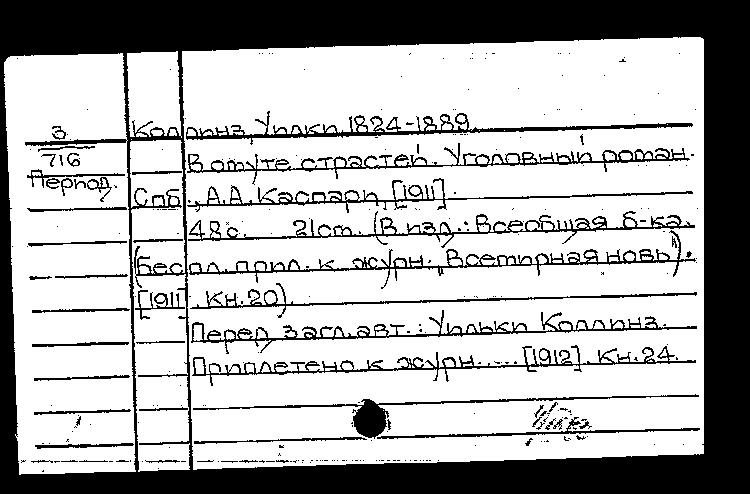 3
716
Период.
Коллинз, Уилки, 1824-1889.
В омуте страстей. Уголовный роман.
Спб., А.А. Каспари, [1911].
48с. 21см. (В изд.: Всеобщая б-ка.
(Беспл. прил. к журн. „Всемирная новь").
[1911]. Кн.20).
Перед загл. авт.: Уильки Коллинз.
Приплетено к журн. ... [1912]. Кн.24.